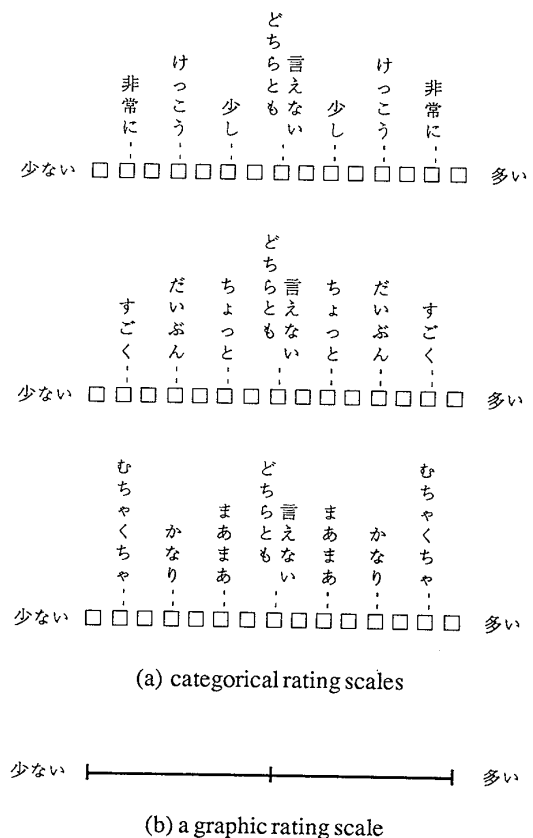 非常に
けっこう
少し
どちらとも
言えない
少し
けっこう
非常に
少ない
多い
すごく
だいぶん
ちょっと
どちらとも
言えない
ちょっと
だいぶん
すごく
少ない
多い
むちゃくちゃ
かなり
まあまあ
どちらとも
言えない
まあまあ
かなり
むちゃくちゃ
少ない
多い
(a) categorical rating scales
少ない
多い
(b) a graphic rating scale